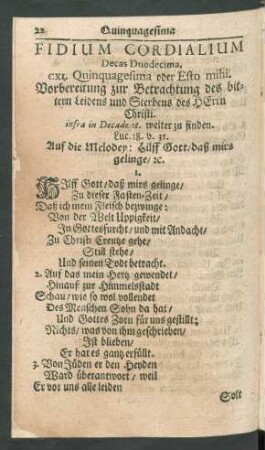 22 Quinquagesima
FIDIUM CORDIALIUM
Decas Duodecima.
CXI. Quinquagesima oder Esto mihi.
Vorbereitung zur Betrachtung des bit-
tern Leidens und Sterbens des HErrn
Christi.
infra in Decade 18. weiter zu finden.
Luc. 18. v. 31.
Auf die Melodey: Hilff Gott/ daß mirs
gelinge/ ꝛc.
1.
HIlff Gott/ daß mirs gelinge/
Zu dieser Fasten-Zeit/
Daß ich mein Fleisch bezwinge:
Von der Welt Uppigkeit/
In Gottesfurcht/ und mit Andacht/
Zu Christi Creutze gehe/
Still stehe/
Und seinen Todt betracht.
2. Auf das mein Hertz gewendet/
Hinauf zur Himmelstadt
Schau/ wie so wol vollendet
Des Menschen Sohn da hat/
Und Gottes Zorn für uns gestillt;
Nichts/ was von ihm geschrieben/
Ist blieben/
Er hat es gantz erfüllt.
3. Von Jüden er den Heyden
Ward überantwort/ weil
Er vor uns alle leiden
Solt